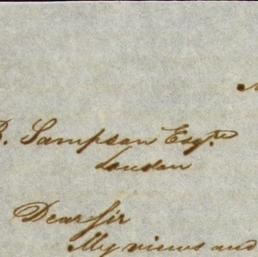 B. Sampson Esqre
London
Dear Sir
My views and